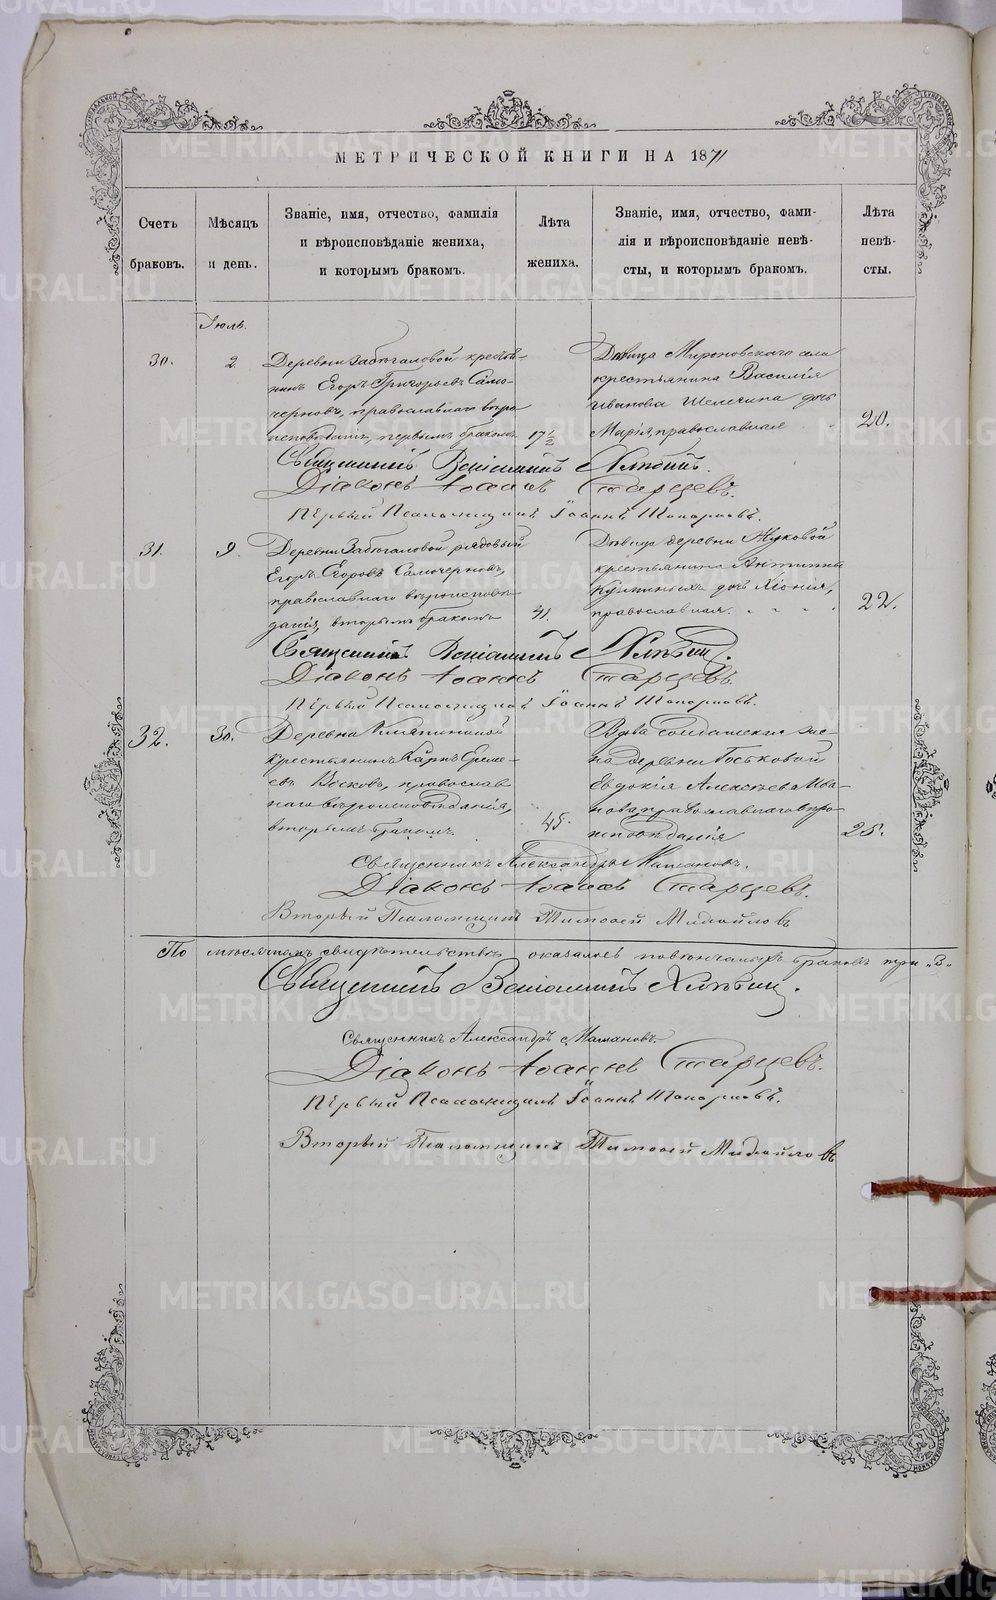 МЕТРИЧЕСКОЙ КНИГИ НА 1871
Счетъ браковъ.
Мѣсяцъ и день.
Званіе, имя, отчество, фамилія и вѣроисповѣданіе жениха, и которымъ бракомъ.
Лѣта жениха.
Званіе, имя, отчество, фами-
лія и вѣроисповѣданіе невѣ-
сты, и которымъ бракомъ.
Лѣта невѣ-
сты.
Іюль.
30.
2.
Деревни Забѣгаловой крестья-
нинъ Егоръ Григорьевъ Само-
черновъ, православнаго вѣро
исповѣданія, первымъ бракомъ
17 1/2
Дѣвица Мироновскаго села
крестьянина Василія
Иванова Шелегина дочь
Марія, православная
20.
Священникъ Веніаминъ Хлѣбинъ.
Діаконъ Іоаннъ Старцевъ.
Первый Псаломщикъ Іоаннъ Топорковъ.
31.
9.
Деревни Забѣгаловой рядовый
Егоръ Егоровъ Самочерновъ,
православнаго вѣроисповѣ-
данія, вторымъ бракомъ
41.
Дѣвица деревни Жуковой
крестьянина
дочь Хіонія,
православная.
22.
Священникъ Веніаминъ Хлѣбинъ.
Діаконъ Іоаннъ Старцевъ.
Первый Псаломщикъ Іоаннъ Топорковъ.
32.
30.
Деревни
крестьянинъ Карпъ
православ
наго вѣроисповѣданія,
вторымъ бракомъ
45.
Вдова солдатская же-
на деревни Госьковой
Евдокія Алексѣева Ива-
нова православнаго вѣро-
исповѣданія
25.
Священникъ Александръ
Діаконъ Іоаннъ Старцевъ.
Вторый Псаломщикъ Тимофей Михайловъ
По мѣсячномъ свидѣтельствѣ оказалось повѣнчанныхъ браковъ три „3“
Священникъ Веніаминъ Хлѣбинъ.
Священникъ Александръ
Діаконъ Іоаннъ Старцевъ.
Первый Псаломщикъ Іоаннъ Топорковъ.
Вторый Псаломщикъ Тимофей Михайловъ
METRIKI.GASO-URAL.RU